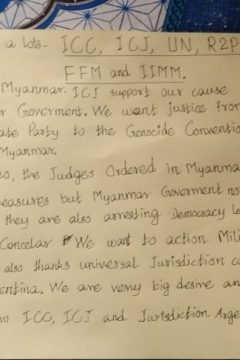 a lots- ICC, ICJ, UN, R2P
FFM and IIMM.
Myanmar. ICJ support our cause
Goverment. We want justice from
Party to the Genocide Convention
Myanmar.
, the Judges Ordered in Myanma
easures but Myanmar Goverment no
they are also arresting Democracy
Concelar We want to action Mili
also thanks universal Jurisdiction ca
entina. We are very big desire an
ICC, ICJ and Jurisdiction Arge